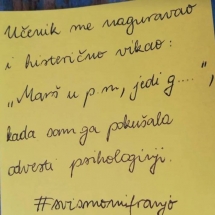 Učenik me naguravao
i histerično vikao:
„Marš u p.m., jedi g....",
kada sam ga pokušala
odvesti psihologinji.
#svismomifranjo